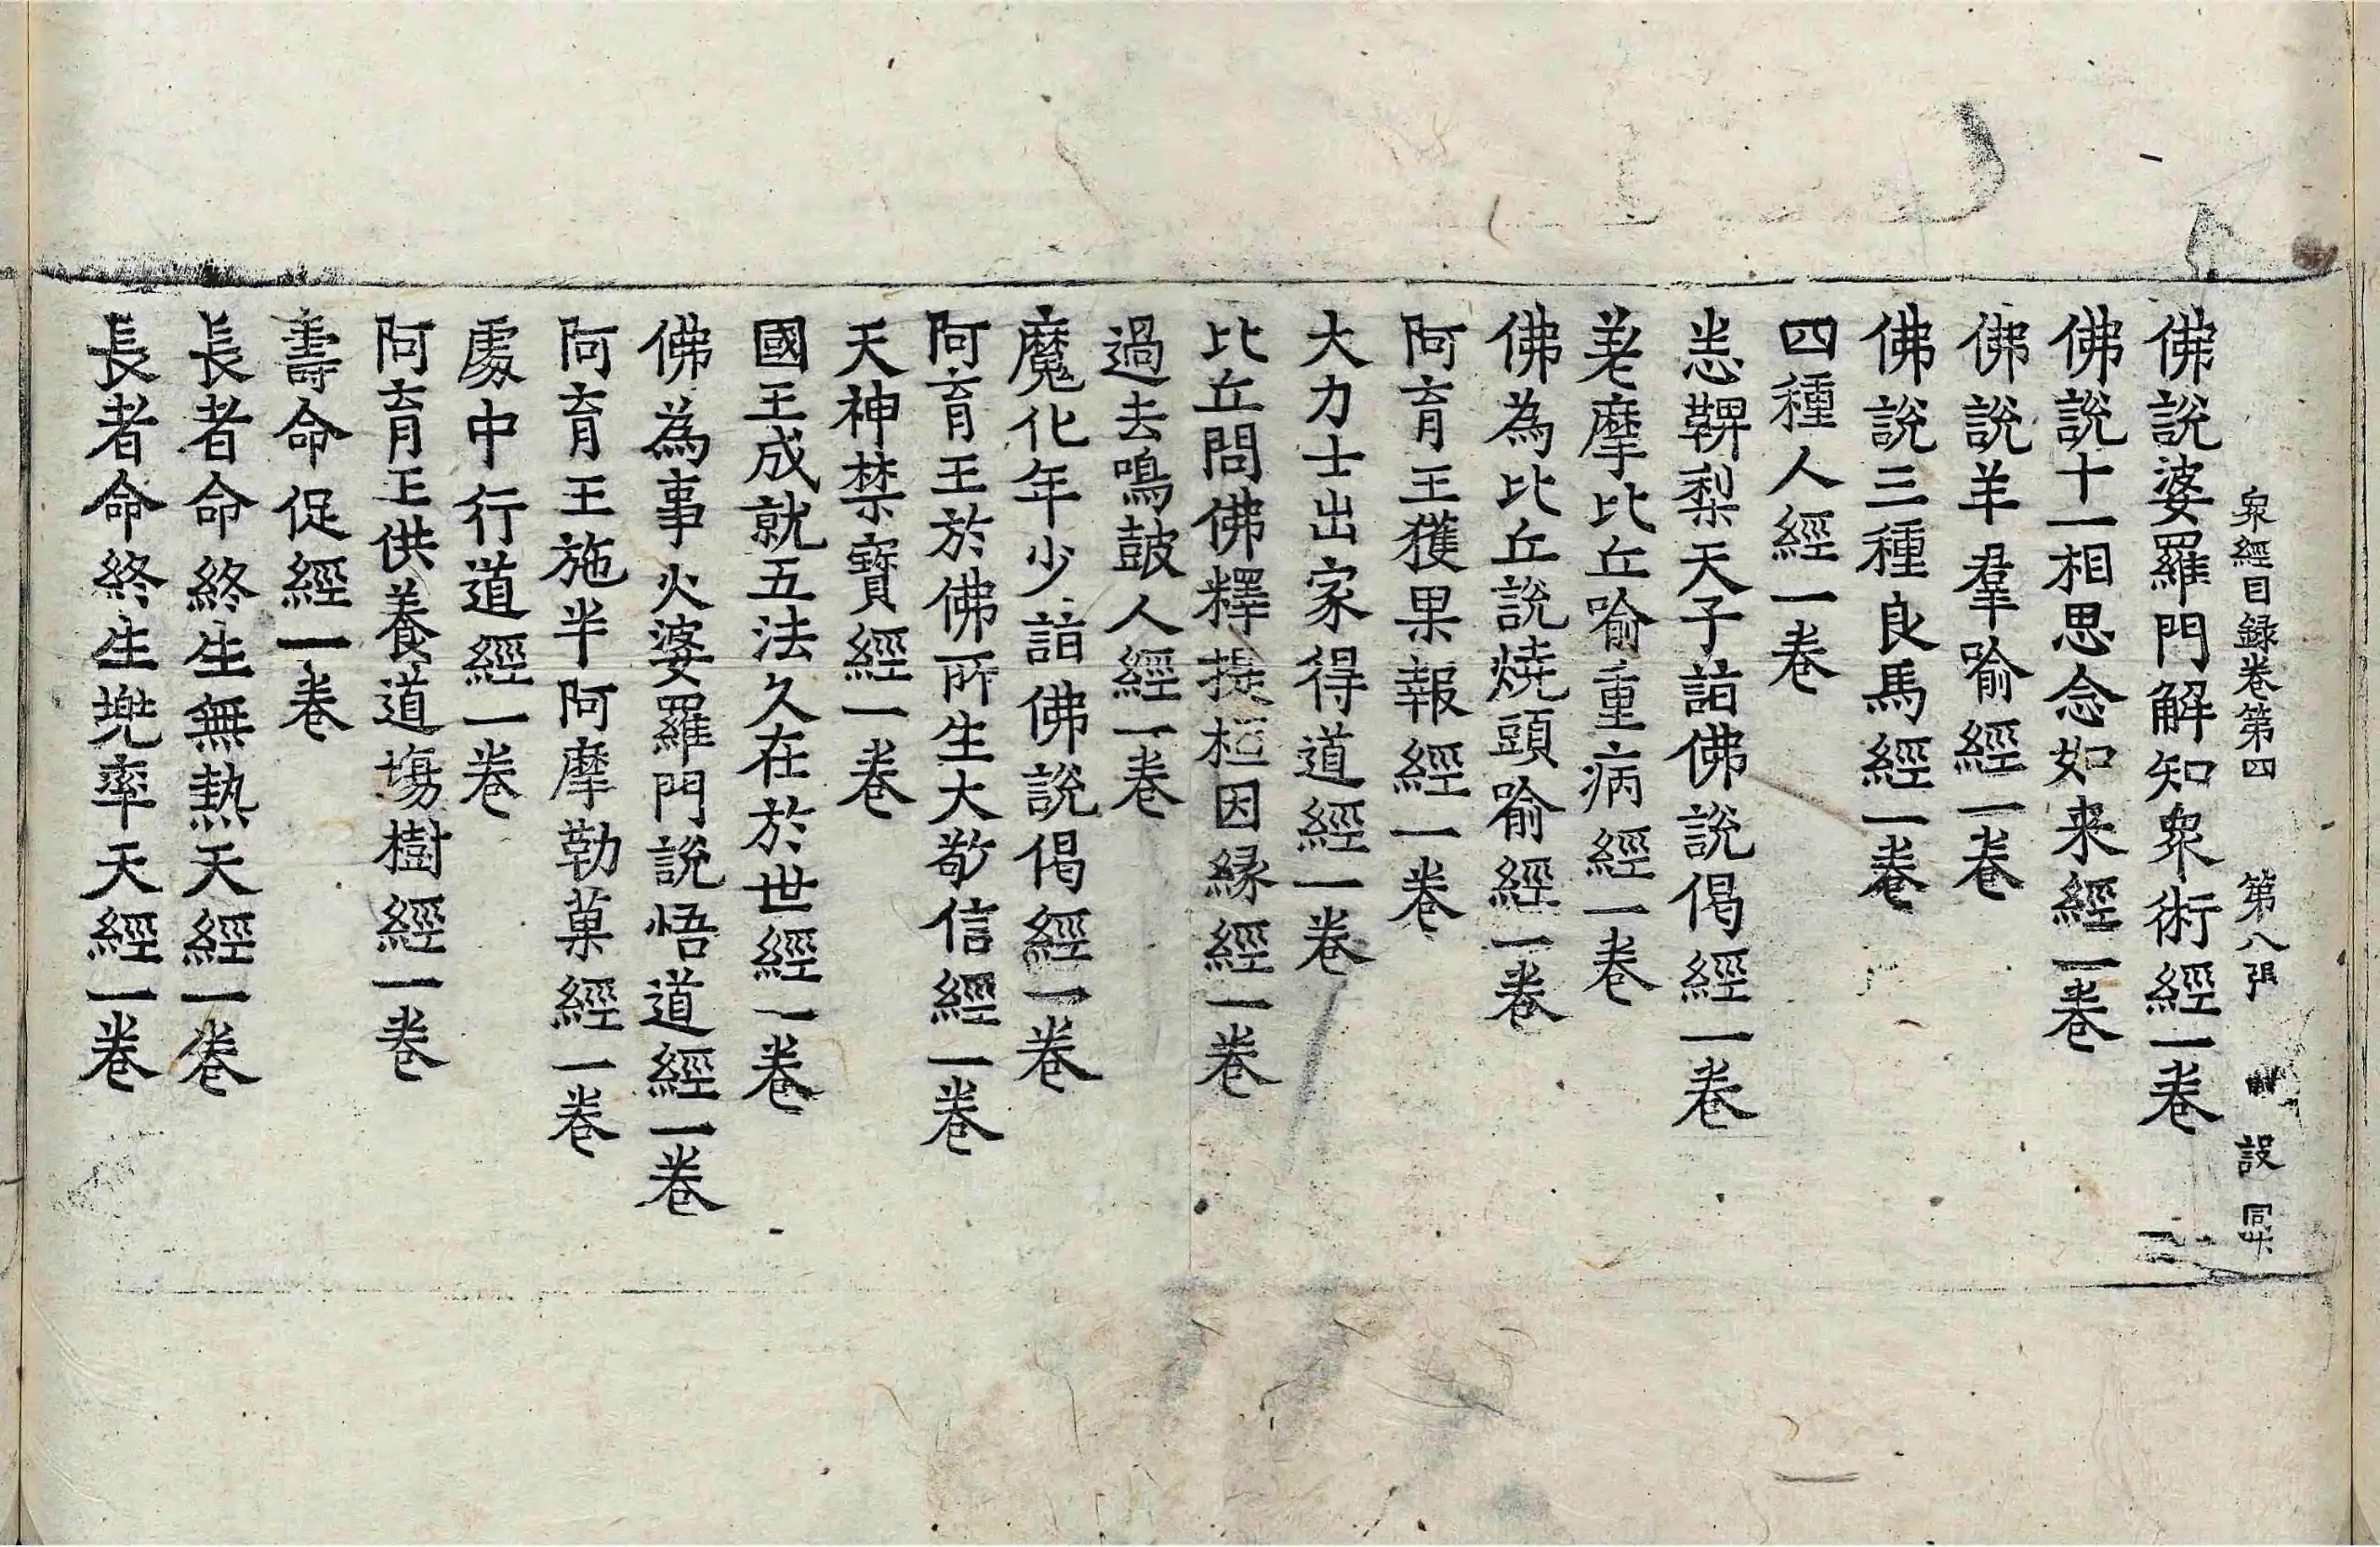 衆經目録卷第四 第八張 設
佛說婆羅門解知衆術經一卷
佛說十一相思念如来經一卷
佛說羊羣喻經一卷
佛說三種良馬經一卷
四種人經一卷
恙鞞梨天子詣佛說偈經一卷
差摩比丘喻重病經一卷
佛為比丘說燒頭喻經一卷
阿育王獲果報經一卷
大力士出家得道經一卷
比丘問佛釋提桓因縁經一卷
過去鳴鼓人經一卷
魔化年少詣佛說偈經一卷
阿育王於佛所生大敬信經一卷
天神禁寶經一卷
國王成就五法久在於世經一卷
佛為事火婆羅門說悟道經一卷
阿育王施半阿摩勒菓經一卷
處中行道經一卷
阿育王供養道場樹經一卷
壽命促經一卷
長者命終生無熱天經一卷
長者命終生兜率天經一卷